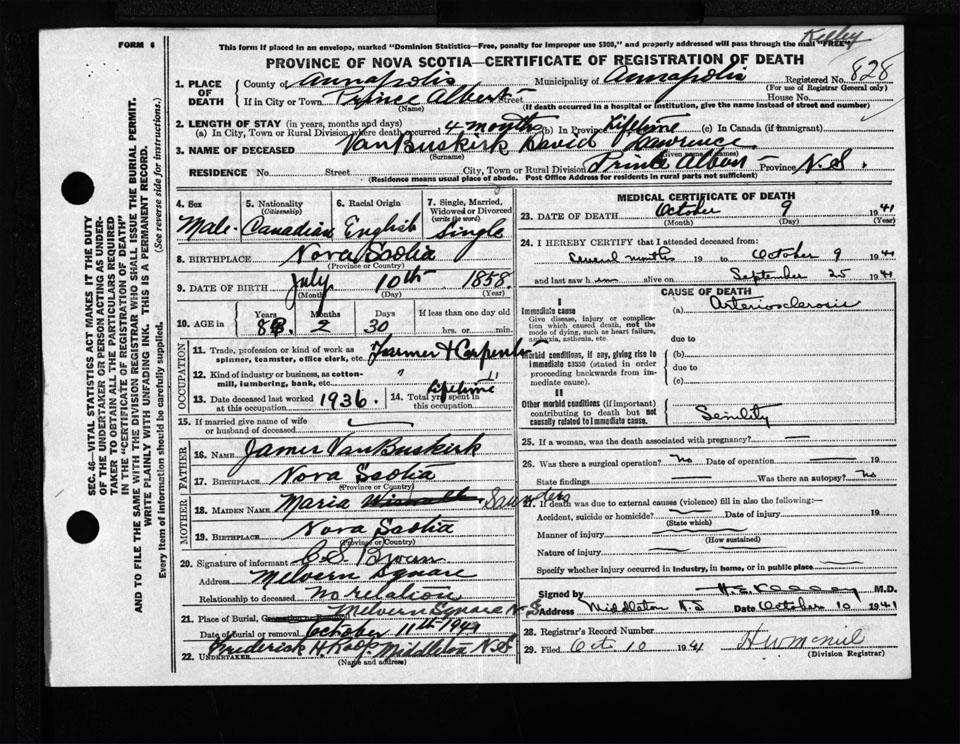 FORM 6
Kelley
This form if placed in an envelope, marked "Dominion Statistics—Free, penalty for improper use $300," and properly addressed will pass through the mail "FREE"
PROVINCE OF NOVA SCOTIA—CERTIFICATE OF REGISTRATION OF DEATH
1. PLACE OF DEATH County of Annapolis Municipality of Annapolis Registered No. 828
(For use of Registrar General only)
If in City or Town Prince Albert Street House No.
(Name) (If death occurred in a hospital or institution, give the name instead of street and number)
2. LENGTH OF STAY (in years, months and days)
(a) In City, Town or Rural Division where death occurred 4 months (b) In Province Lifetime (c) In Canada (if immigrant)
3. NAME OF DECEASED VanBuskirk David Lawrence
(Surname) (Given name or names)
RESIDENCE No. Street City, Town or Rural Division Prince Albert Province N.S.
(Residence means usual place of abode. Post Office Address for residents in rural parts not sufficient)
4. Sex Male
5. Nationality (Citizenship) Canadian
6. Racial Origin English
7. Single, Married, Widowed or Divorced (write the word) Single
8. BIRTHPLACE Nova Scotia
(Province or Country)
9. DATE OF BIRTH July 10th 1858
(Month) (Day) (Year)
10. AGE in Years Months Days If less than one day old
83 2 30 hrs. or min.
OCCUPATION
11. Trade, profession or kind of work as spinner, teamster, office clerk, etc. Farmer & Carpenter
12. Kind of industry or business, as cotton-mill, lumbering, bank, etc. " "
13. Date deceased last worked at this occupation 1936
14. Total yrs. spent in this occupation Lifetime
15. If married give name of wife or husband of deceased
FATHER
16. NAME James VanBuskirk
17. BIRTHPLACE Nova Scotia
(Province or Country)
MOTHER
18. MAIDEN NAME Maria Saunders
19. BIRTHPLACE Nova Scotia
(Province or Country)
20. Signature of informant C S Brown
Address Melvern Square
Relationship to deceased no relation
21. Place of Burial, Melvern Square N.S
Date of burial or removal October 11th 1941
22. UNDERTAKER Frederick H Roop Middleton N.S
(Name and address)
MEDICAL CERTIFICATE OF DEATH
23. DATE OF DEATH October 9 1941
(Month) (Day) (Year)
24. I HEREBY CERTIFY that I attended deceased from:
Several months 19 to October 9 1941
and last saw him alive on September 25 1941
CAUSE OF DEATH
I
Immediate cause
Give disease, injury or complication which caused death, not the mode of dying, such as heart failure, asphyxia, asthenia, etc.
(a) Arteriosclerosis
due to
Morbid conditions, if any, giving rise to immediate cause (stated in order proceeding backwards from immediate cause).
(b)
due to
(c)
II
Other morbid conditions (if important) contributing to death but not causally related to immediate cause.
Senility
25. If a woman, was the death associated with pregnancy? —
26. Was there a surgical operation? No Date of operation — 19
State findings — Was there an autopsy? No
27. If death was due to external causes (violence) fill in also the following:—
Accident, suicide or homicide? Date of injury 19
(State which)
Manner of injury
(How sustained)
Nature of injury
Specify whether injury occurred in industry, in home, or in public place
Signed M.D.
Address Middleton N.S Date October 10 1941
28. Registrar's Record Number
29. Filed Oct 10 1941 H W McNeil
(Division Registrar)
SEC. 46—VITAL STATISTICS ACT MAKES IT THE DUTY
OF THE UNDERTAKER OR PERSON ACTING AS UNDER-
TAKER TO OBTAIN ALL THE PARTICULARS REQUIRED
IN THE "CERTIFICATE OF REGISTRATION OF DEATH"
AND TO FILE THE SAME WITH THE DIVISION REGISTRAR WHO SHALL ISSUE THE BURIAL PERMIT.
WRITE PLAINLY WITH UNFADING INK. THIS IS A PERMANENT RECORD.
Every item of information should be carefully supplied. (See reverse side for instructions.)